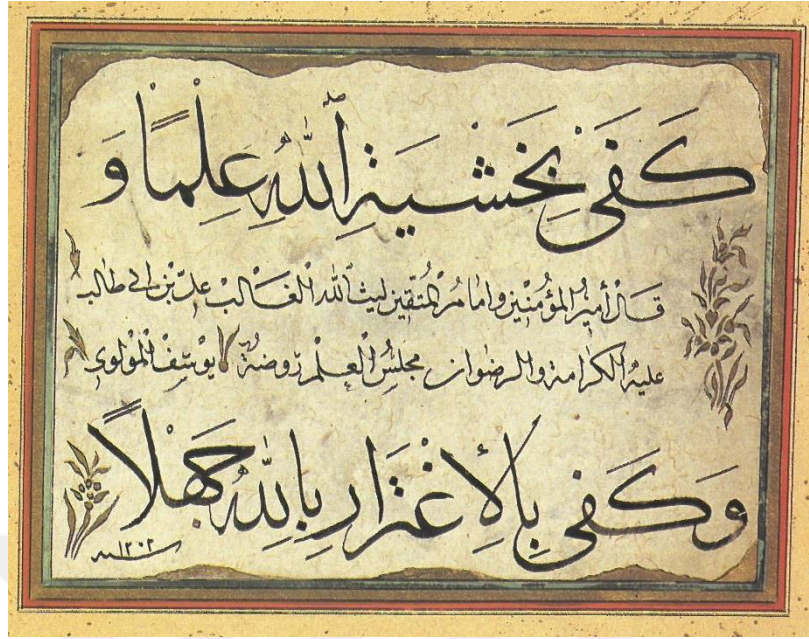 كَفَى بِخَشْيَةِ ٱللّٰهِ عِلْمًا وَ
قَالَ أَمِيرُ الْمُؤْمِنِين وامَامُ الْمُتَّقِين لَيث ٱللّٰه الْغَالِب عَلِيّ بْن ابى طالب
عليه الكرامة والرضوان مجلسُ الْعِلْمِ رَوضَةٌ يوسف الْمَوْلَوِى
وَكَفَى بِالْأِغْتِرَارِ بِاللّٰهِ جَهْلاً
سنه ١٢٠٢